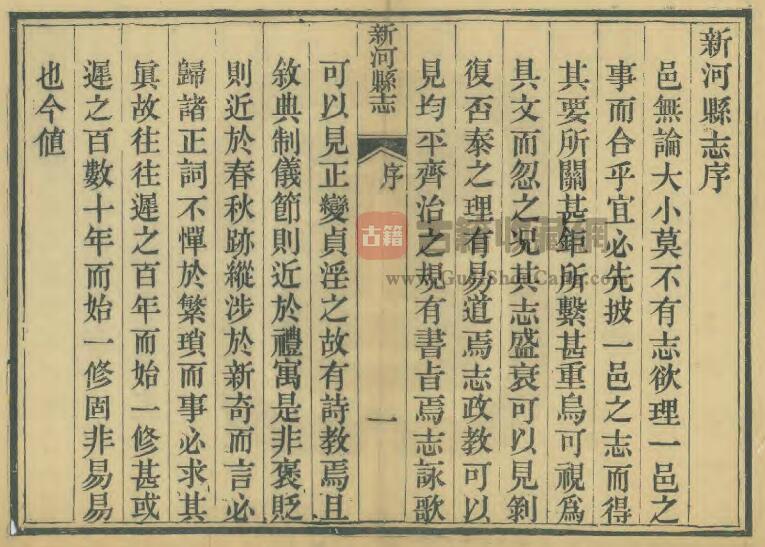 新河縣志序
邑無論大小莫不有志欲理一邑之
事而合乎宜必先披一邑之志而得
其要所關甚鉅所繫甚重烏可視爲
具文而忽之况其志盛衰可以見剝
復否泰之理有易道焉志政教可以
見均平齊治之規有書旨焉志詠歌
新河縣志
序
一
可以見正變貞淫之故有詩教焉且
敘典制儀節則近於禮寓是非褒貶
則近於春秋跡縱涉於新奇而言必
歸諸正詞不憚於繁瑣而事必求其
眞故往往遲之百年而始一修甚或
遲之百數十年而始一修固非易易
也今値
古籍